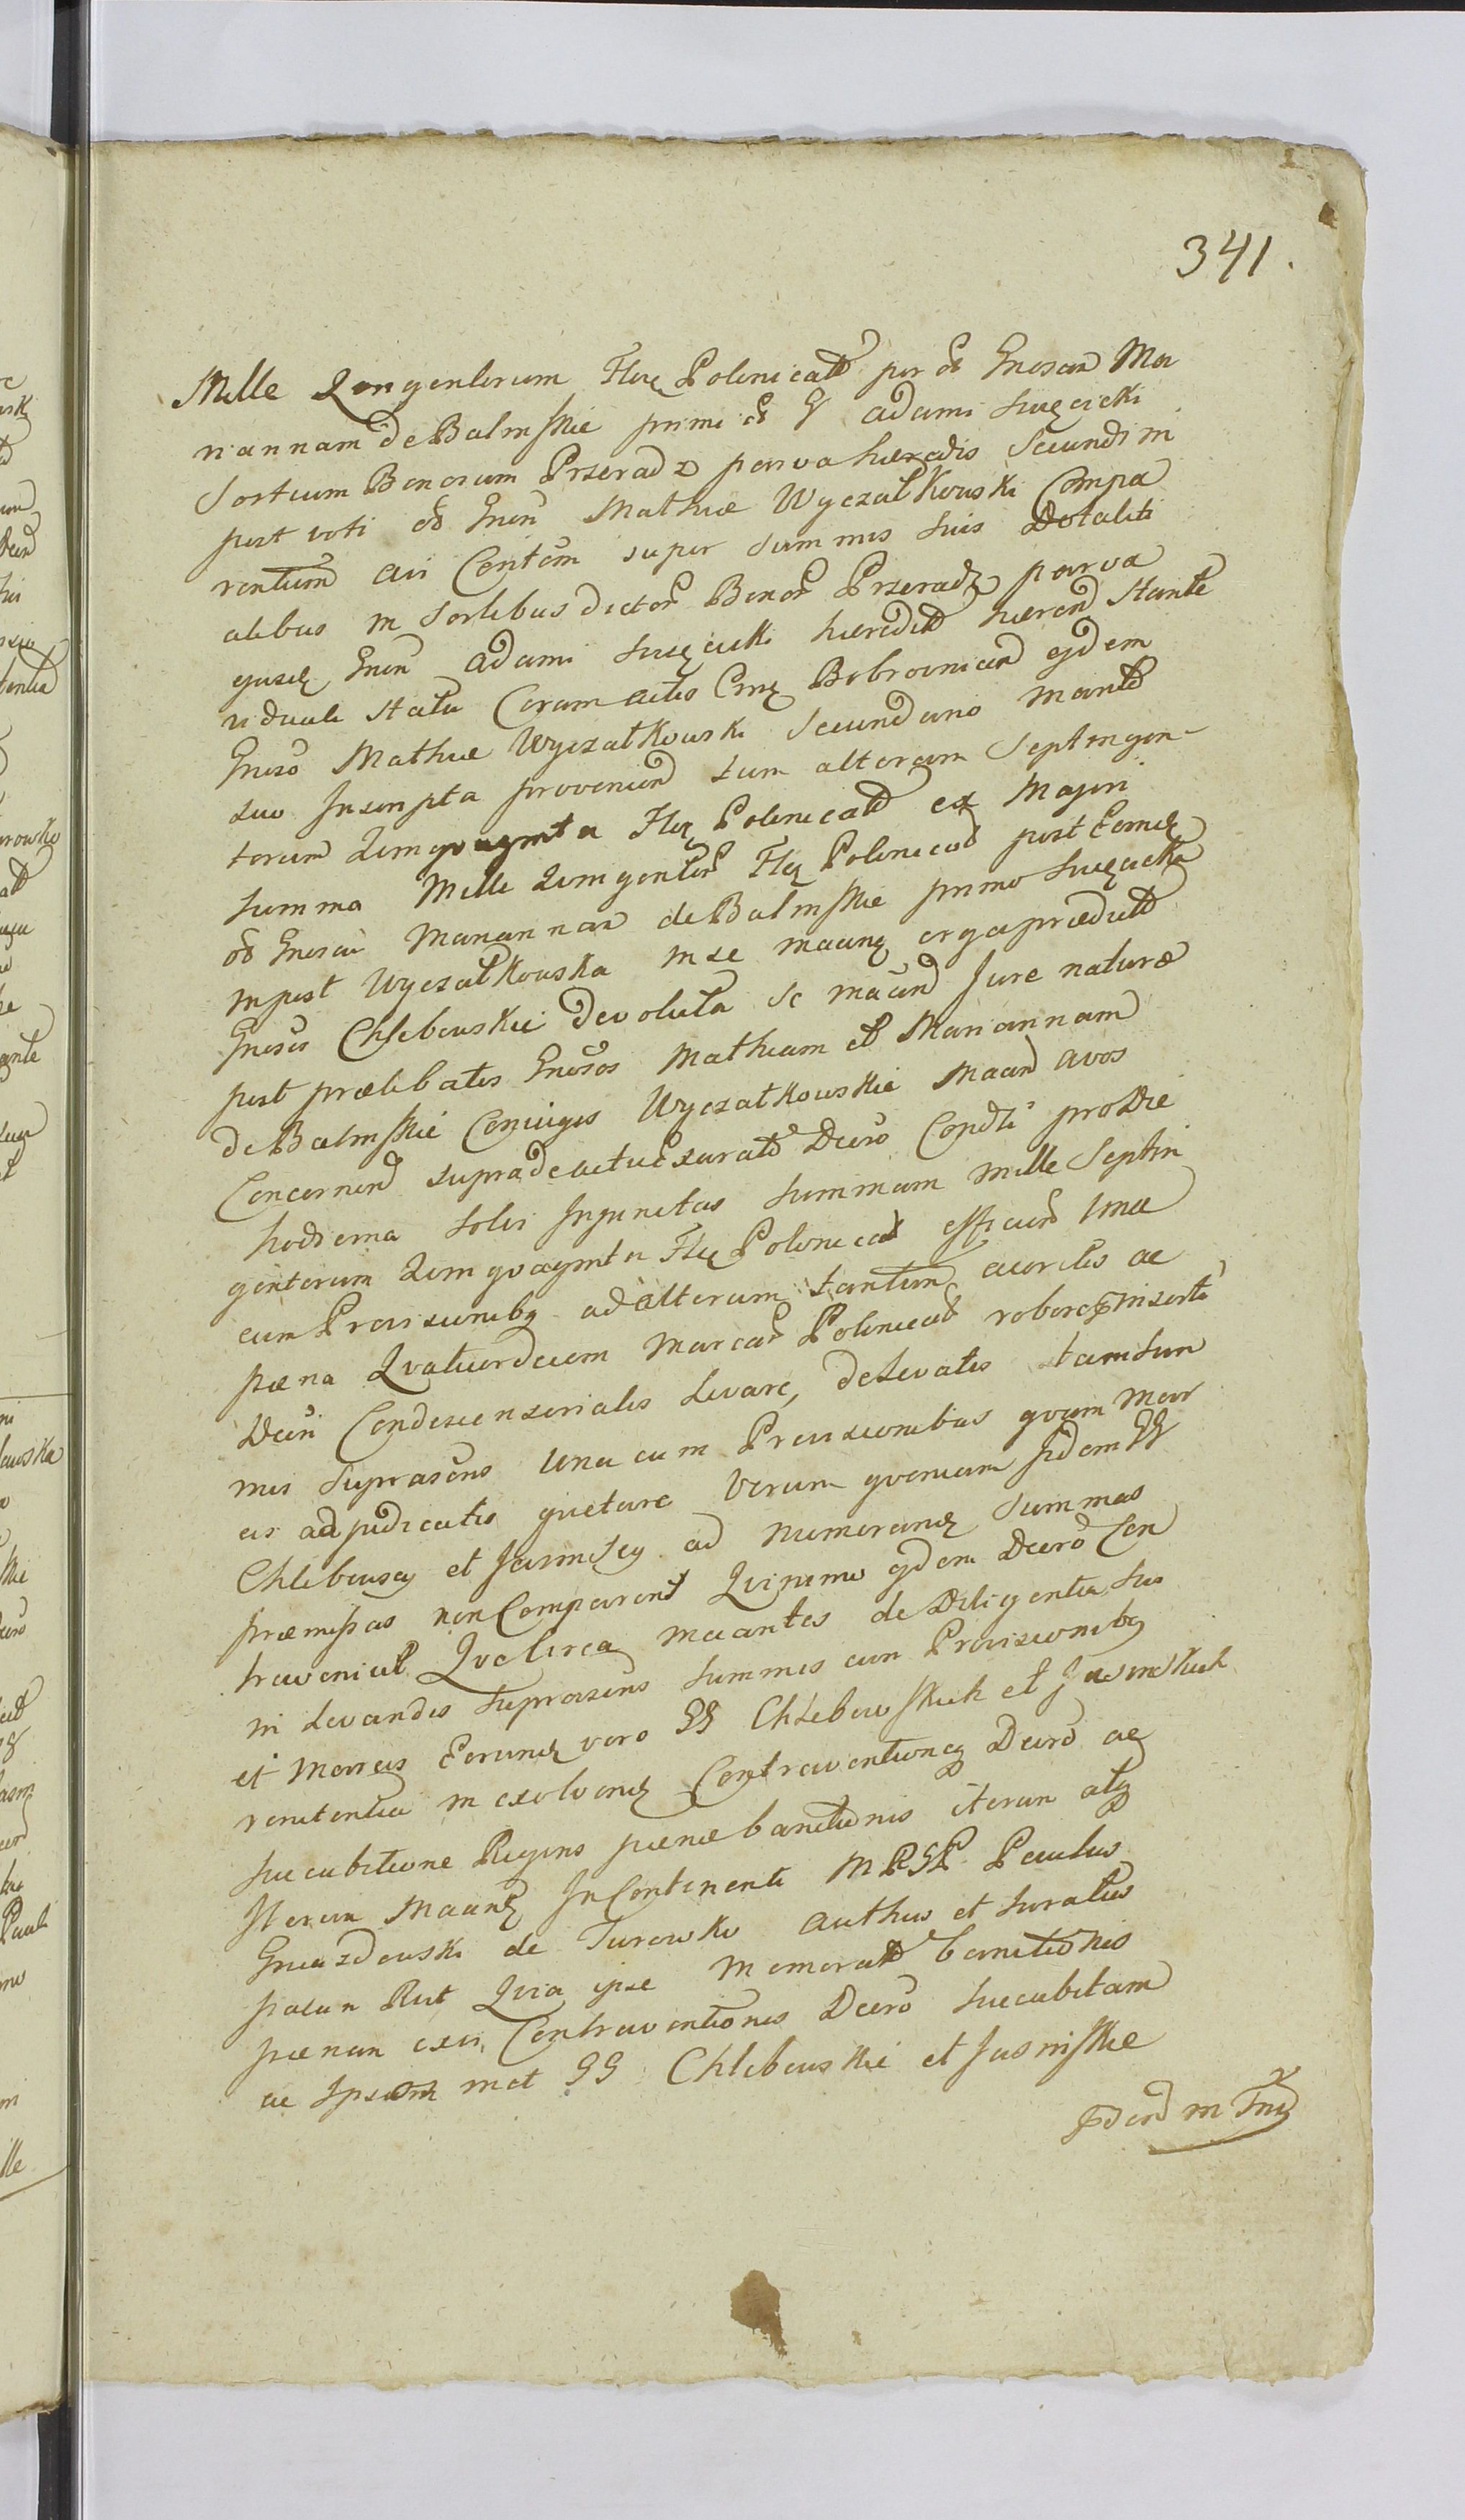 341.
Mille Qengentorum Flor Polonicalt per oð Gnosam Ma
riannam de Balinskie primi oð G Adami Suęcicki
Sortium Bonorum Przeradz parva hæredis Secundi in
post voti oð Gnen Mathiæ Wyczałkowski Compa
rentium avi Conten super summis suis Dotaliti
alibus in Sortibus dictor Bonor Przeradz parva
ejusd Gnen Adami Suęcicki hæredit hæren stante
viduali statu Coram actis Cens Bobrovnicen ejdem
Gnoso Mathiæ Wyczałkowski Secundano Marito
suo Inscripta provenien tum alteram Septingen-
torum Qvinqvaginta Flor Polonicalt ex Majori
Summa Mille Qvingentor Flor Polonical post Eand
oð Gnosam Mariannam de Balinskie primo Suęcicka
in post Wyczałkowska in se maang erga prædictt
Gnosos Chlebowskie devoluta se maand Jure naturæ
post prælibatos Gnosos Mathiam et Mariannam
de Balinskie Coniuges Wyczałkowskie Maand avos
Concernen supra de actu exaratt Decro Condti pro Die
hodierna solvi Injunctas Summam Mille Septin
gentorum Qvinqvaginta Flor Polonical efficien una
cum Provisionibq ad alterum tantum accortis ac
pæna Qvatuordecim Marcar Polonical robore inserti
Decri Condescensorialis Levare, de Levatis tam Sum
mis suprascris una cum Provisionibus qvam Mar
cis adjudicatis qvietare Verum qvoniam Iidem GG
Chlebowscy et Jasinscy ad numerand Summas
præmissas non Comparent Qvinimo ejdem Decro Con
traveniunt Qvocirca maantes de Diligentia sua
in Levandis Suprascris Summis cum Provisionibq
et Marcis Eorund vero GG Chlebowskich et Jasinskich
renitentia in exolvend Contraventioneq Decro ac
succubitione Rigens pænæ banitionis iterum atq
Iterum Maand In Continenti MPGP Paulus
Gniazdowski de Turowko Authus et Juratus
palam Rlt Qvia ipse memoratt banitionis
pænam exin Contraventionis Decro Succubitam
ac Ipsosmet GG Chlebowskie et Jasinskie